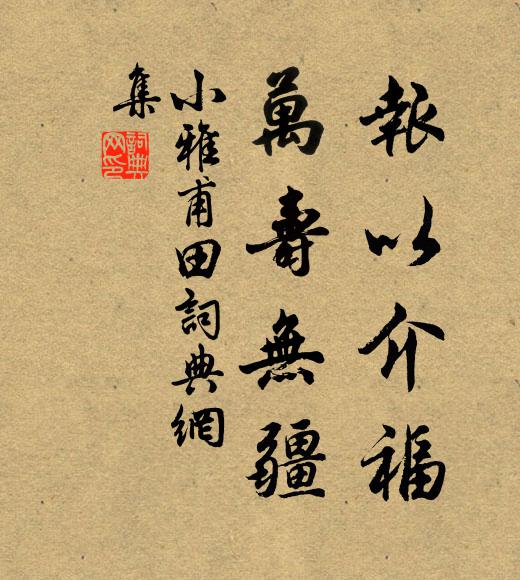 報以介福
萬壽無疆
小雅甫田詞典網
集
詞典
网印